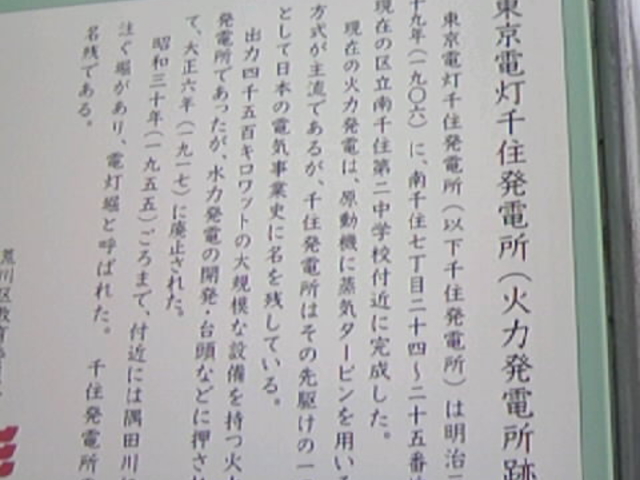 東京電灯千住発電所（火力発電所跡
東京電灯千住発電所（以下千住発電所）は明治三
十九年（一九〇六）に、南千住七丁目二十四〜二十五番
現在の区立南千住第二中学校付近に完成した。
現在の火力発電は、原動機に蒸気タービンを用いる
方式が主流であるが、千住発電所はその先駆けの一
として日本の電気事業史に名を残している。
出力四千五百キロワットの大規模な設備を持つ火
発電所であったが、水力発電の開発・台頭などに押され
て、大正六年（一九一七）に廃止された。
昭和三十年（一九五五）ごろまで、付近には隅田川に
注ぐ堀があり、電灯堀と呼ばれた。　千住発電所
名残である。
荒川区教育委員